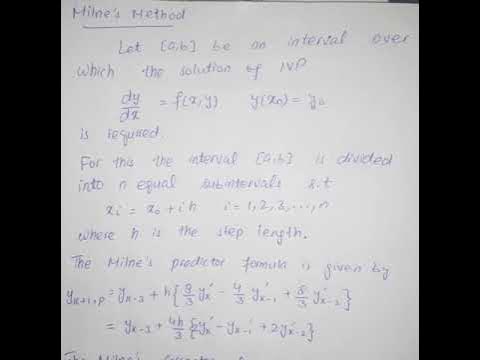 Milne's Method
Let [a,b] be an interval over
which the solution of IVP
dy/dx = f(x,y) y(x₀) = y₀
is required.
For this the interval [a,b] is divided
into n equal subintervals s.t
xᵢ = x₀ + i h i = 1,2,3,...,n
where h is the step length.
The Milne's predictor formula is given by
yₙ₊₁,ₚ = yₙ₋₃ + h{8/3 y'ₙ - 4/3 y'ₙ₋₁ + 8/3 y'ₙ₋₂}
= yₙ₋₃ + 4h/3 {2y'ₙ - y'ₙ₋₁ + 2y'ₙ₋₂}
The Milne's